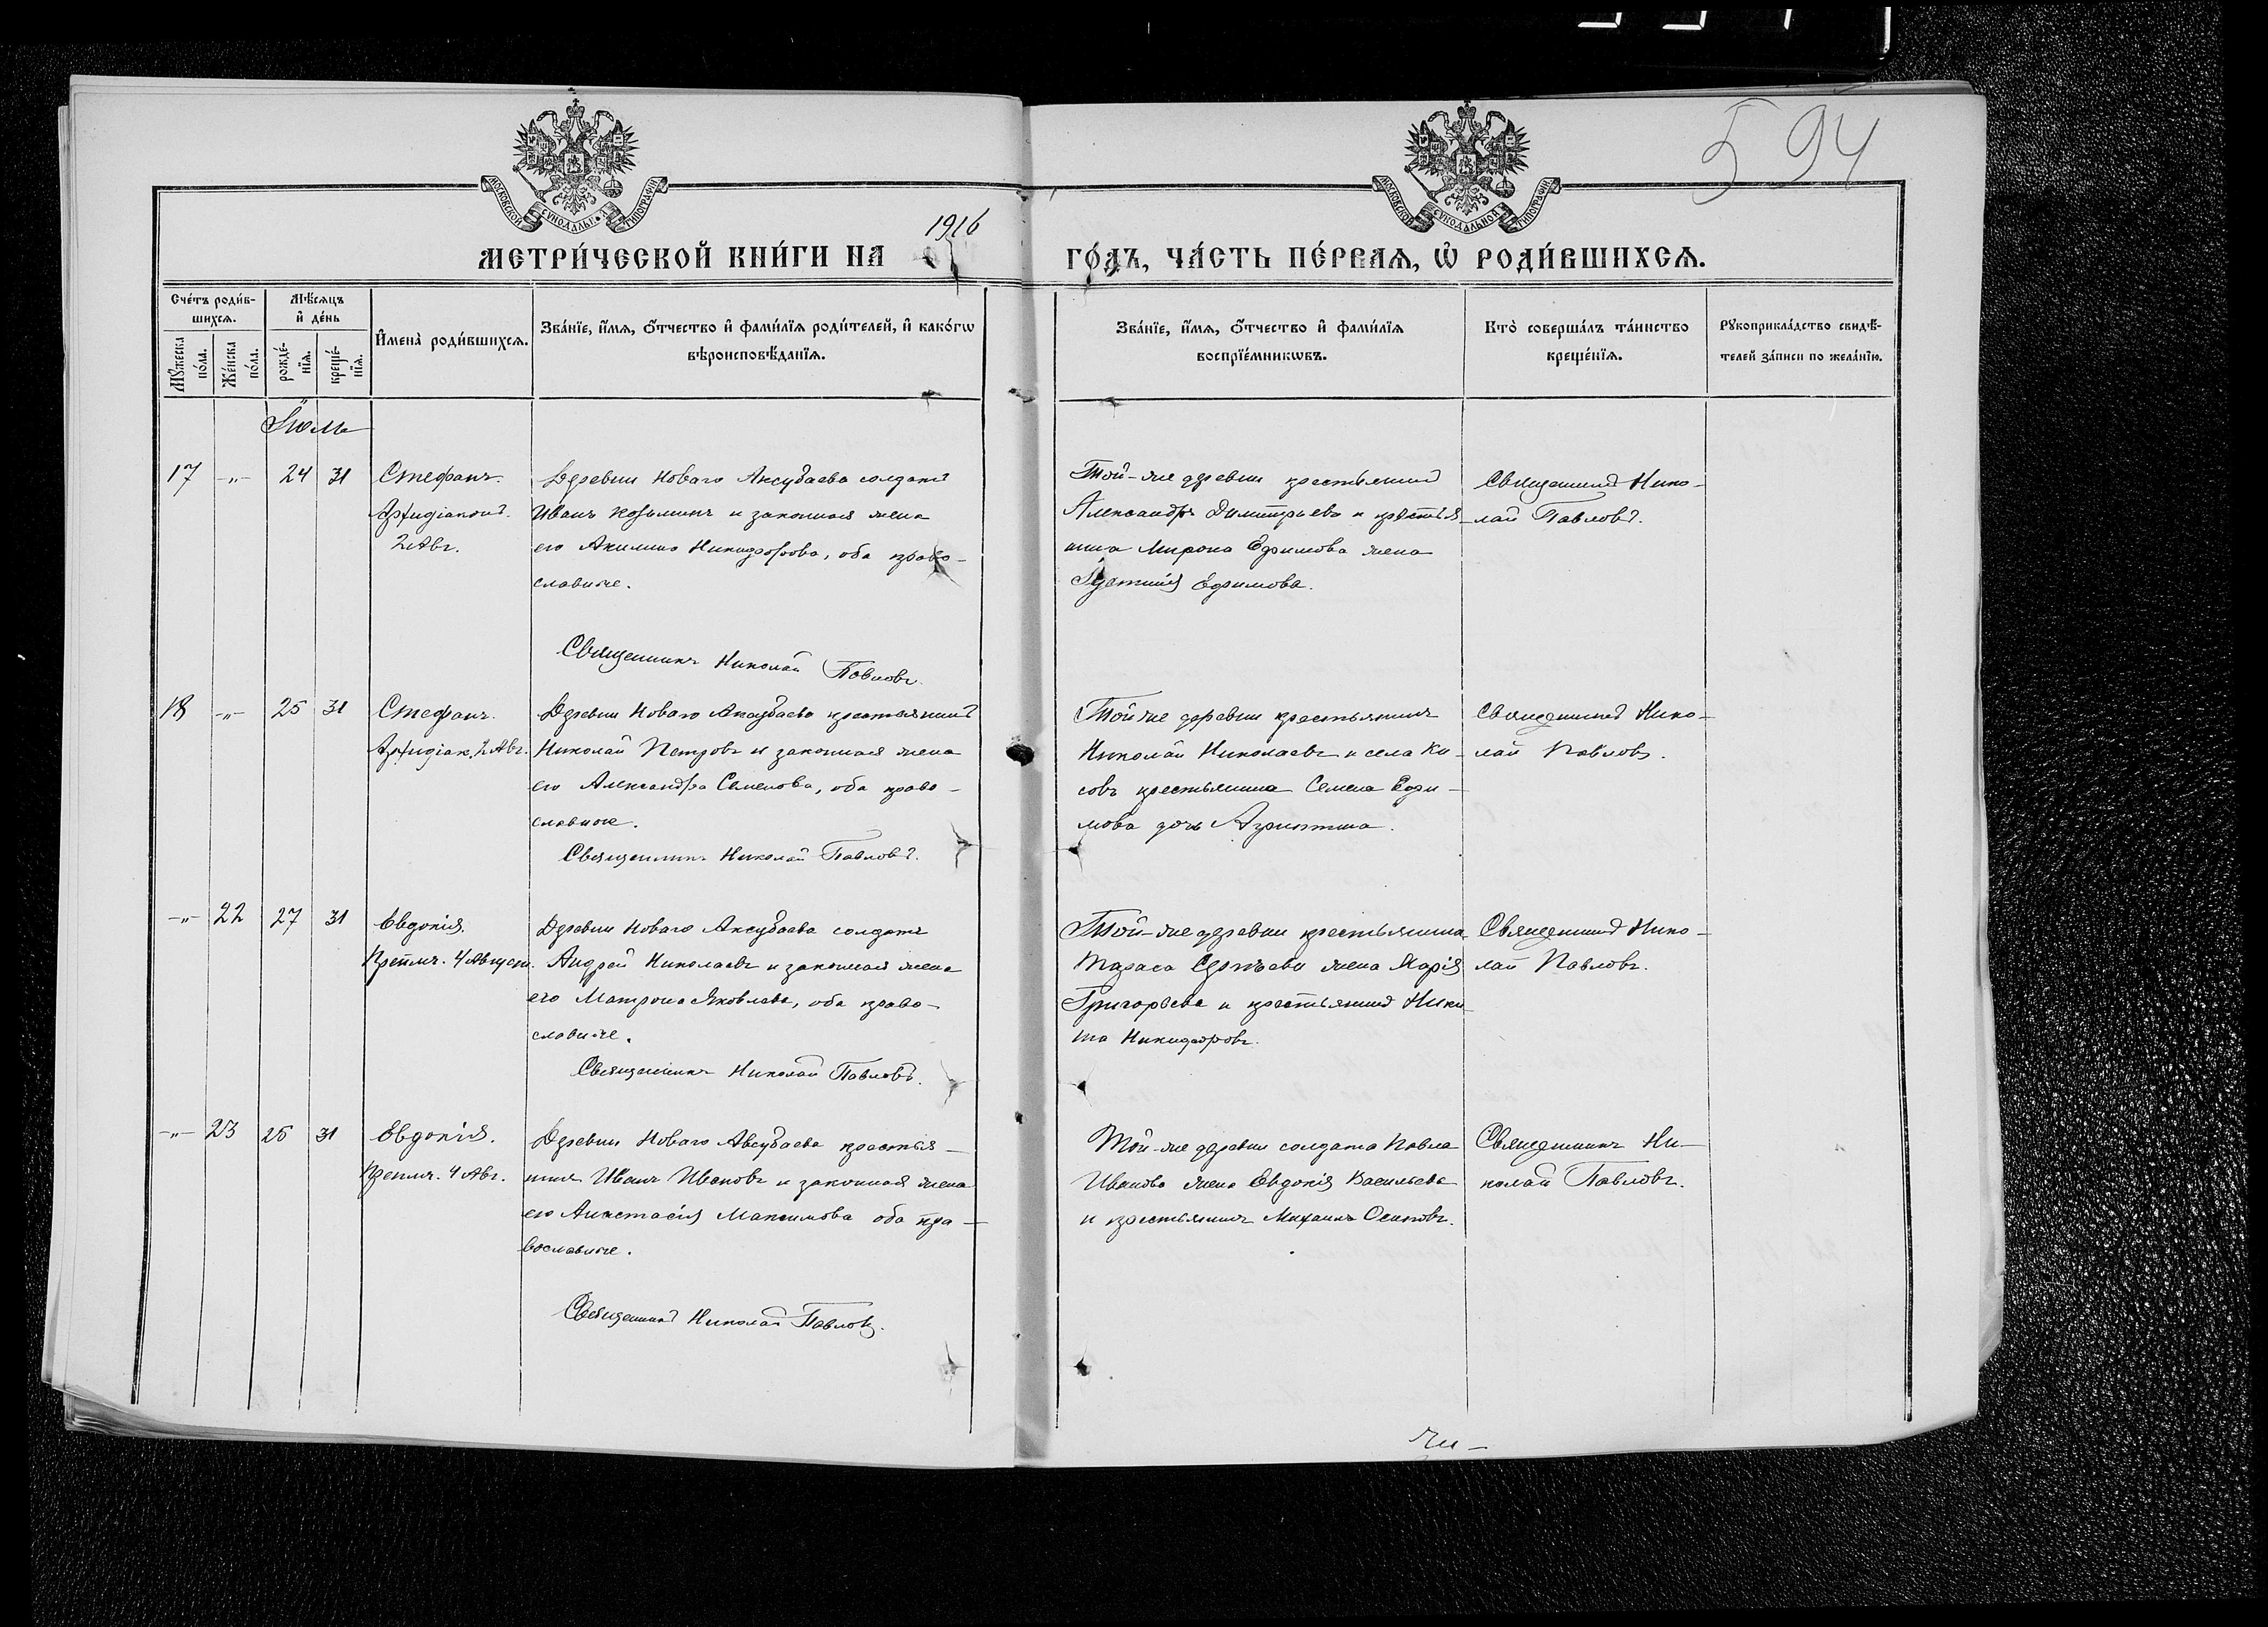 594
МОСКОВСКОЙ СѴНОДАЛЬНОЙ ТИПОГРАФІИ
МОСКОВСКОЙ СѴНОДАЛЬНОЙ ТИПОГРАФІИ
1916
МЕТРИ́ЧЕСКОЙ КНИ́ГИ НА ГО́ДЪ, ЧА́СТЬ ПЕ́РВАѦ, Ѡ҆ РОДИ́ВШИХСѦ.
Сче́тъ роди́в-
шихсѧ.
Мꙋ́жеска по́ла.
Же́нска по́ла.
Мѣ́сѧцъ
и҆ де́нь
рожде́-
нїѧ.
креще́-
нїѧ.
И҆мена̀ роди́вшихсѧ.
Зва́нїе, и҆́мѧ, ѻ҆́тчество и҆ фами́лїѧ роди́телей, и҆ како́гѡ
вѣроисповѣ́данїѧ.
Зва́нїе, и҆́мѧ, ѻ҆́тчество и҆ фами́лїѧ
воспрїе́мникѡвъ.
Кто̀ соверша́лъ та́инство
креще́нїѧ.
Рꙋкоприкла́дство свидѣ́-
телей за́писи по жела́нїю.
Іюль
17 -"- 24 31
Стефанъ.
Архидіаконъ.
2 Авг.
Деревни Новаго Аксубаева солдатъ
Иванъ Козьминъ и законная жена
его Акилина Никифорова, оба право-
славные.
Священникъ Николай Павловъ
Той-же деревни крестьянинъ
Александръ Димитрьевъ и крестья-
нина Мирона Ефимова жена
Ефимова.
Священникъ Нико-
лай Павловъ.
18 -"- 25 31
Стефанъ.
Архидіак. 2 Авг.
Деревни Новаго Аксубаева крестьянинъ
Николай Петровъ и законная жена
его Александра Семенова, оба право-
славные.
Священникъ Николай Павловъ.
Той же деревни крестьянинъ
Николай Николаевъ и села Ки-
совъ крестьянина Семена Ефи-
мова дочь Агриппина.
Священникъ Нико-
лай Павловъ.
-"- 22 27 31
Евдокія.
Препмч. 4 Август.
Деревни Новаго Аксубаева солдатъ
Андрей Николаевъ и законная жена
его Матрона Яковлева, оба право-
славные.
Священникъ Николай Павловъ.
Той-же деревни крестьянина
Тараса Сергѣева жена Марія
Григорьева и крестьянинъ Ники-
та Никифоровъ.
Священникъ Нико-
лай Павловъ.
-"- 23 25 31
Евдокія.
Препмч. 4 Авг.
Деревни Новаго Авсубаева крестья-
нинъ Иванъ Ивановъ и законная жена
его Анастасія Максимова оба пра-
вославные.
Священникъ Николай Павловъ.
Той-же деревни солдата Павла
Иванова жена Евдокія Васильева
и крестьянинъ Михаилъ Осиповъ.
Священникъ Ни-
колай Павловъ.